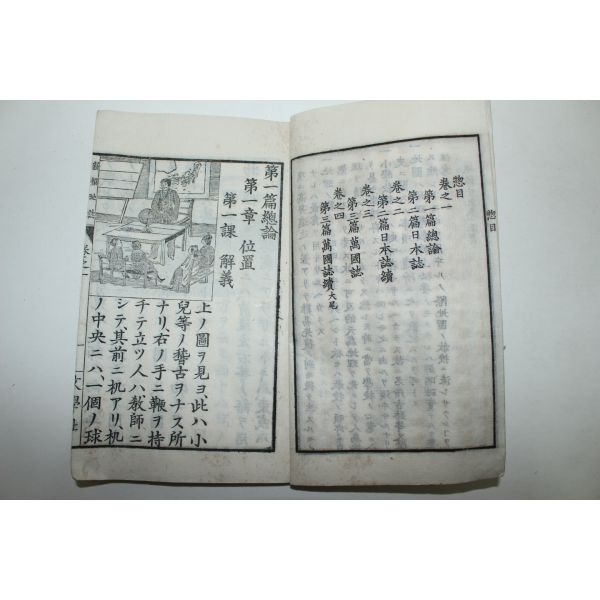 惣目
卷之一
第一篇總論
第二篇日本誌
卷之二
第二篇日本誌續
卷之三
第三篇萬國誌
卷之四
第三篇萬國誌續大尾
惣目
第一篇總論
第一章 位置
第一課 解義
上ノ圖ヲ見ヨ、此ハ小
兒等ノ稽古ヲナス所
ナリ、右ノ手ニ鞭ヲ持
チテ立ツ人ハ教師ニ
シテ、其前ニ机アリ、机
ノ中央ニハ、一個ノ球
卷之一
文學社